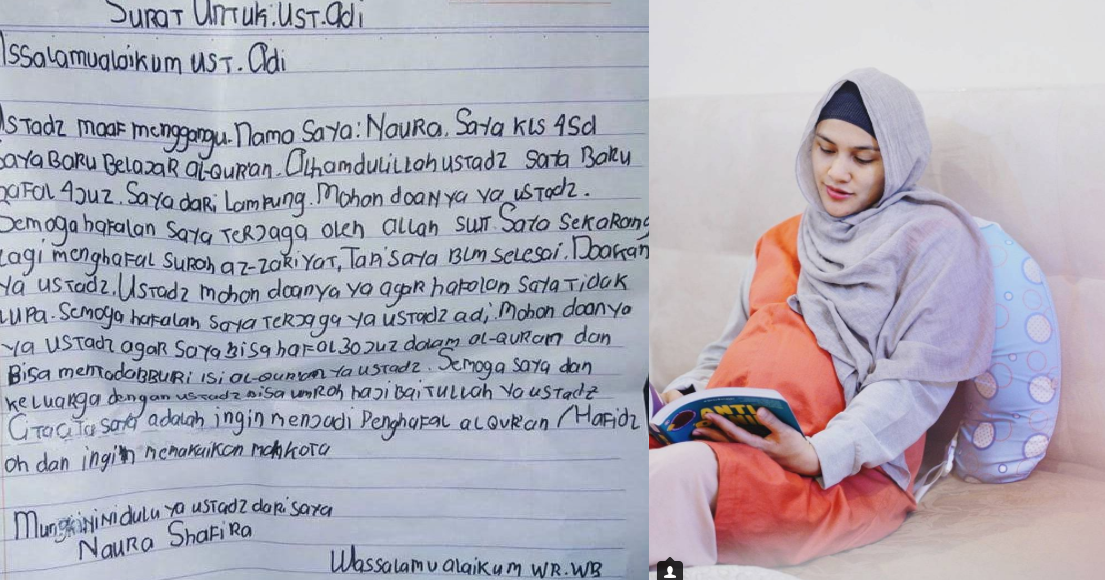 SURAT UNTUK.UST.Adi
Assalamualaikum UST. Adi
Ustadz maaf menggangu. Nama Saya: NAURA. Saya KLS 4Sd
Saya BARU BELAJAR AL-QURAN. Alhamdulillah ustadz saya Baru
hafal 4Juz. Saya dari Lampung. Mohon doanya ya ustadz.
Semoga hafalan saya TERJAGA oleh allah SWT. Saya Sekarang
Lagi menghafal SURAh az-zariyat, Tapi saya BLM selesai. Doakan
ya ustadz. Ustadz mohon doanya ya agar hafalan saya Tidak
LUPA. Semoga hafalan saya TERJAGA ya ustadz adi. Mohon doanya
ya ustadz agar saya bisa hafal 30 Juz dalam al-Quram dan
Bisa mentadabBuRi isi al-Qur'an ya ustadz. Semoga saya dan
keluarga dengan ustadz bisa umroh haji BaiTullah ya ustadz
CitaCita saya adalah ingin menjadi Penghafal al QuR'an / Hafidz
oh dan ingin memakaikan mahkota
Mungkin ini dulu ya ustadz dari saya
NAURA ShaFiRa
Wassalamualaikum WR.WB
ANTI